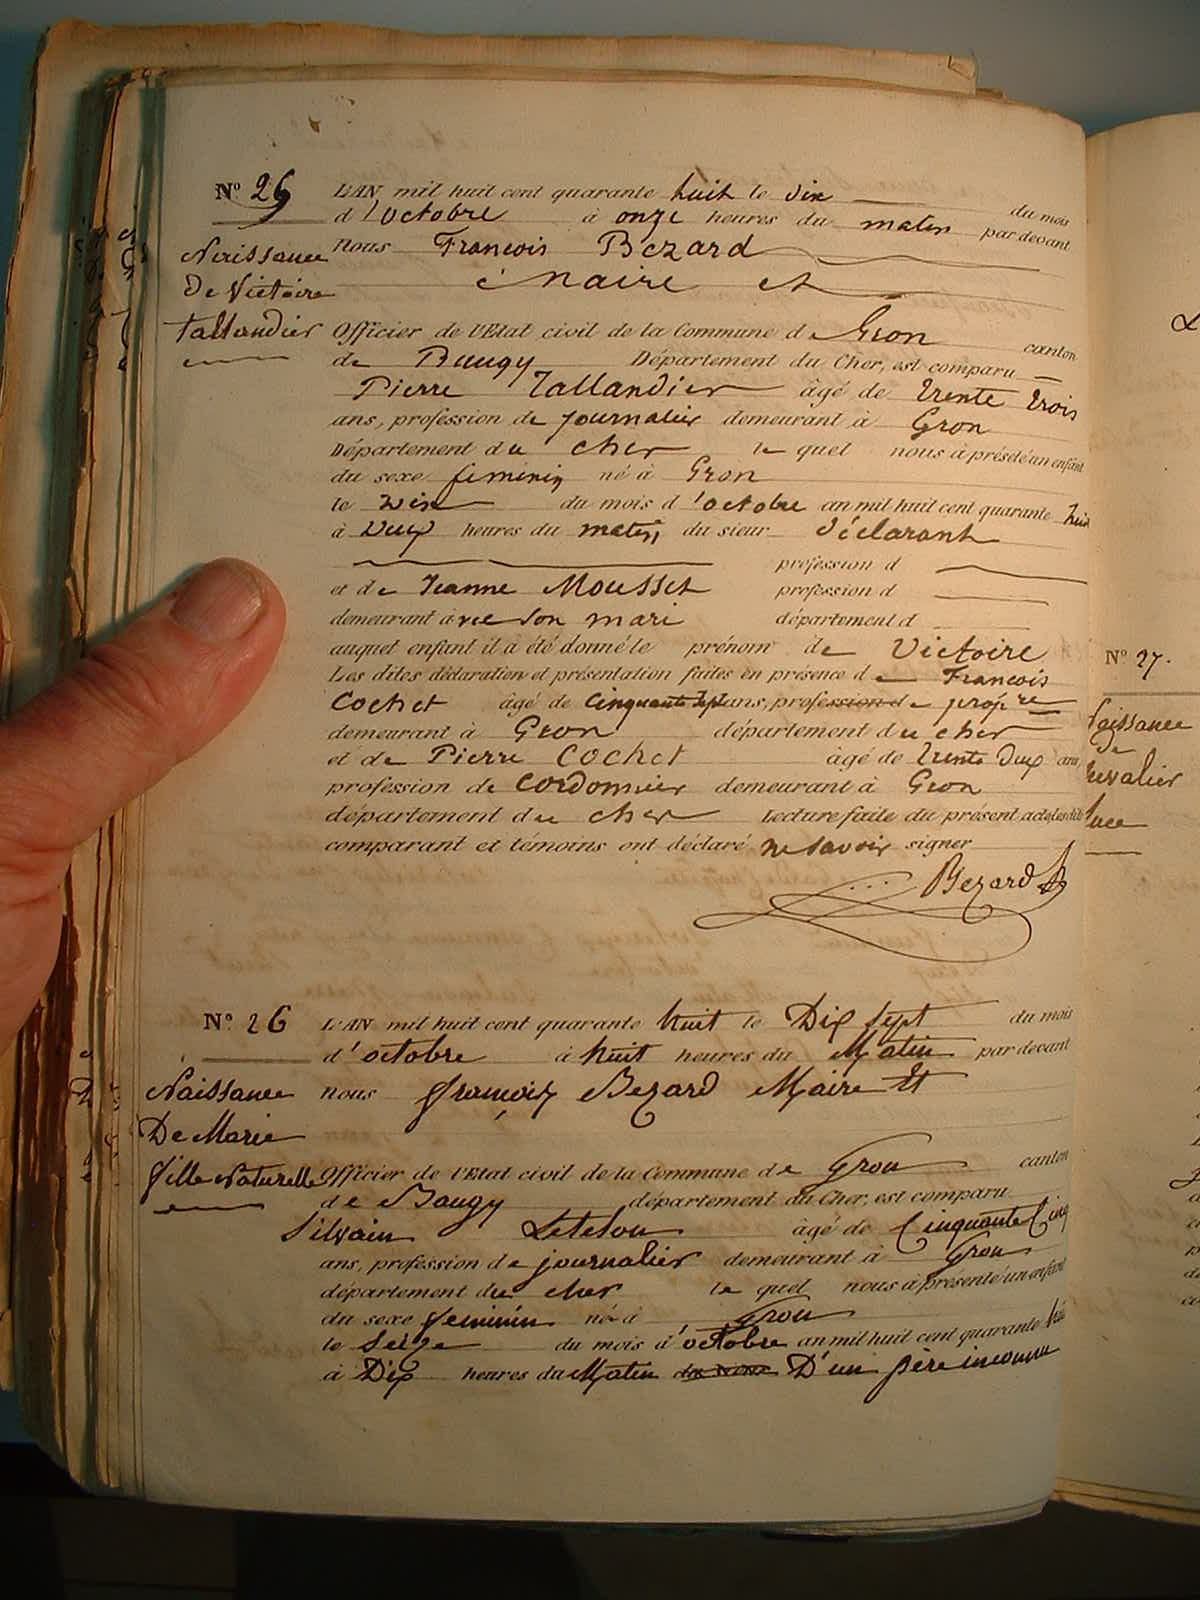 N.º 25
Naissance
De Victoire
Tallandier
L'AN mil huit cent quarante huit le dix du mois
d'octobre à onze heures du matin par devant
nous François Bezard
Maire et
Officier de l'Etat civil de la Commune de Gron canton
de Baugy Département du Cher, est comparu
Pierre Tallandier âgé de trente trois
ans, profession de journalier demeurant à Gron
Département du cher le quel nous à présété un enfant
du sexe feminin né à Gron
le dix du mois d'octobre an mil huit cent quarante huit
à Deux heures du matin, du sieur déclarant
profession d
et de Jeanne Mousset profession d
demeurant avec son mari département d
auquel enfant il a été donné le prénom de Victoire
Les dites déclaration et présentation faites en présence de François
Cochet âgé de Cinquante sept ans, profession de propre
demeurant à Gron département du cher
et de Pierre Cochet âgé de trente Deux ans
profession de Cordonnier demeurant à Gron
département du cher Lecture faite du présent acte, les dits
comparant et témoins ont déclaré ne savoir signer
Bezard
N.º 26
Naissance
De Marie
fille Naturelle
L'AN mil huit cent quarante huit le Dix sept du mois
d'octobre à huit heures du Matin par devant
nous françois Bezard Maire Et
Officier de l'Etat civil de la Commune de Gron canton
de Baugy département du Cher, est comparu
Silvain Leteson âgé de Cinquante Cinq
ans, profession de journalier demeurant à Gron
département du cher le quel nous à présenté un enfant
du sexe feminin né à Gron
le Seize du mois d'octobre an mil huit cent quarante huit
à Dix heures du Matin du sieur D'un père inconnu
N.º 27.
Naissance
de
Chevalier